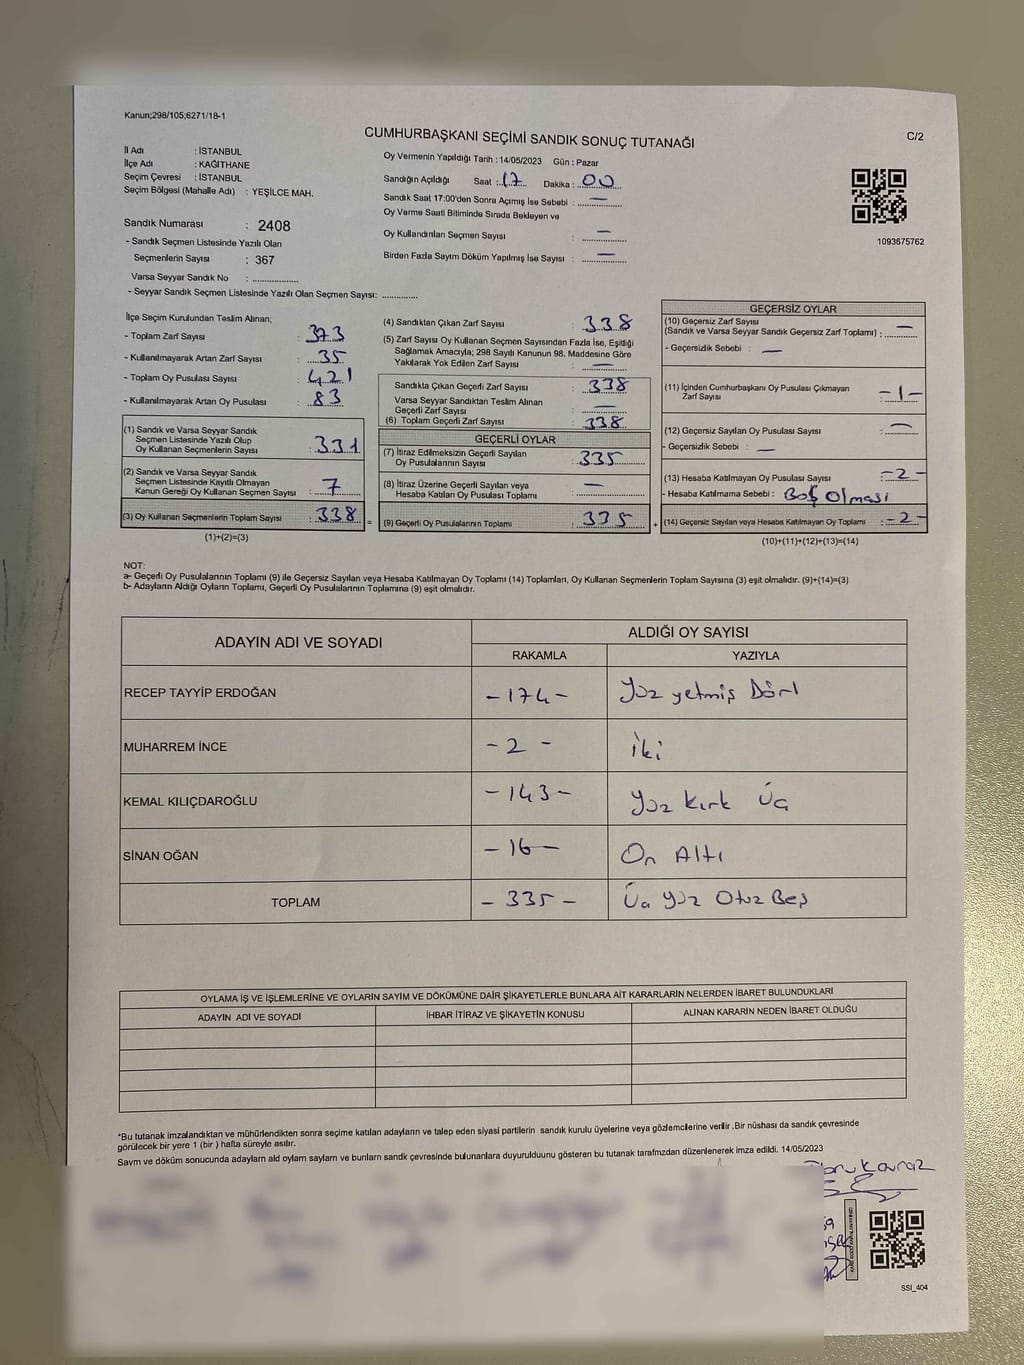 Kanun;298/105;6271/18-1
CUMHURBAŞKANI SEÇİMİ SANDIK SONUÇ TUTANAĞI
C/2
İl Adı : İSTANBUL
İlçe Adı : KAĞITHANE
Seçim Çevresi : İSTANBUL
Seçim Bölgesi (Mahalle Adı) : YEŞİLCE MAH.
Sandık Numarası : 2408
- Sandık Seçmen Listesinde Yazılı Olan
Seçmenlerin Sayısı : 367
Varsa Seyyar Sandık No : ..................
- Seyyar Sandık Seçmen Listesinde Yazılı Olan Seçmen Sayısı: ..............
Oy Vermenin Yapıldığı Tarih : 14/05/2023 Gün : Pazar
Sandığın Açıldığı Saat : 17 Dakika : 00
Sandık Saat 17:00'den Sonra Açımış İse Sebebi : —
Oy Verme Saati Bitiminde Sırada Bekleyen ve
Oy Kullandırılan Seçmen Sayısı : —
Birden Fazla Sayım Döküm Yapılmış İse Sayısı : —
1093675762
İlçe Seçim Kurulundan Teslim Alınan;
- Toplam Zarf Sayısı : 373
- Kullanılmayarak Artan Zarf Sayısı : 35
- Toplam Oy Pusulası Sayısı : 421
- Kullanılmayarak Artan Oy Pusulası : 83
(1) Sandık ve Varsa Seyyar Sandık
Seçmen Listesinde Yazılı Olup
Oy Kullanan Seçmenlerin Sayısı : 331
(2) Sandık ve Varsa Seyyar Sandık
Seçmen Listesinde Kayıtlı Olmayan
Kanun Gereği Oy Kullanan Seçmen Sayısı : 7
(3) Oy Kullanan Seçmenlerin Toplam Sayısı : 338
(1)+(2)=(3)
(4) Sandıktan Çıkan Zarf Sayısı : 338
(5) Zarf Sayısı Oy Kullanan Seçmen Sayısından Fazla İse, Eşitliği
Sağlamak Amacıyla; 298 Sayılı Kanunun 98. Maddesine Göre
Yakılarak Yok Edilen Zarf Sayısı : —
Sandıkta Çıkan Geçerli Zarf Sayısı : 338
Varsa Seyyar Sandıktan Teslim Alınan
Geçerli Zarf Sayısı : —
(6) Toplam Geçerli Zarf Sayısı : 338
GEÇERLİ OYLAR
(7) İtiraz Edilmeksizin Geçerli Sayılan
Oy Pusulalarının Sayısı : 335
(8) İtiraz Üzerine Geçerli Sayılan veya
Hesaba Katılan Oy Pusulası Toplamı : —
= (9) Geçerli Oy Pusulalarının Toplamı : 335 +
GEÇERSİZ OYLAR
(10) Geçersiz Zarf Sayısı
(Sandık ve Varsa Seyyar Sandık Geçersiz Zarf Toplamı) : —
- Geçersizlik Sebebi : —
(11) İçinden Cumhurbaşkanı Oy Pusulası Çıkmayan
Zarf Sayısı : -1-
(12) Geçersiz Sayılan Oy Pusulası Sayısı : —
- Geçersizlik Sebebi : —
(13) Hesaba Katılmayan Oy Pusulası Sayısı : -2-
- Hesaba Katılmama Sebebi : Boş Olması
(14) Geçersiz Sayılan veya Hesaba Katılmayan Oy Toplamı : -2-
(10)+(11)+(12)+(13)=(14)
NOT:
a- Geçerli Oy Pusulalarının Toplamı (9) ile Geçersiz Sayılan veya Hesaba Katılmayan Oy Toplamı (14) Toplamları, Oy Kullanan Seçmenlerin Toplam Sayısına (3) eşit olmalıdır. (9)+(14)=(3)
b- Adayların Aldığı Oyların Toplamı, Geçerli Oy Pusulalarının Toplamına (9) eşit olmalıdır.
ADAYIN ADI VE SOYADI ALDIĞI OY SAYISI
RAKAMLA YAZIYLA
RECEP TAYYİP ERDOĞAN -174- Yüz yetmiş Dört
MUHARREM İNCE -2- İki
KEMAL KILIÇDAROĞLU -143- Yüz Kırk Üç
SİNAN OĞAN -16- On Altı
TOPLAM -335- Üç yüz Otuz Beş
OYLAMA İŞ VE İŞLEMLERİNE VE OYLARIN SAYIM VE DÖKÜMÜNE DAİR ŞİKAYETLERLE BUNLARA AİT KARARLARIN NELERDEN İBARET BULUNDUKLARI
ADAYIN ADI VE SOYADI İHBAR İTİRAZ VE ŞİKAYETİN KONUSU ALINAN KARARIN NEDEN İBARET OLDUĞU
*Bu tutanak imzalandıktan ve mühürlendikten sonra seçime katılan adayların ve talep eden siyasi partilerin sandık kurulu üyelerine veya gözlemcilerine verilir .Bir nüshası da sandık çevresinde
görülecek bir yere 1 (bir ) hafta süreyle asılır.
Sayım ve döküm sonucunda adayların ald oyların sayıların ve bunların sandk çevresinde bulunanlara duyurulduunu gösteren bu tutanak tarafımzdan düzenlenerek imza edildi. 14/05/2023
SSI_404